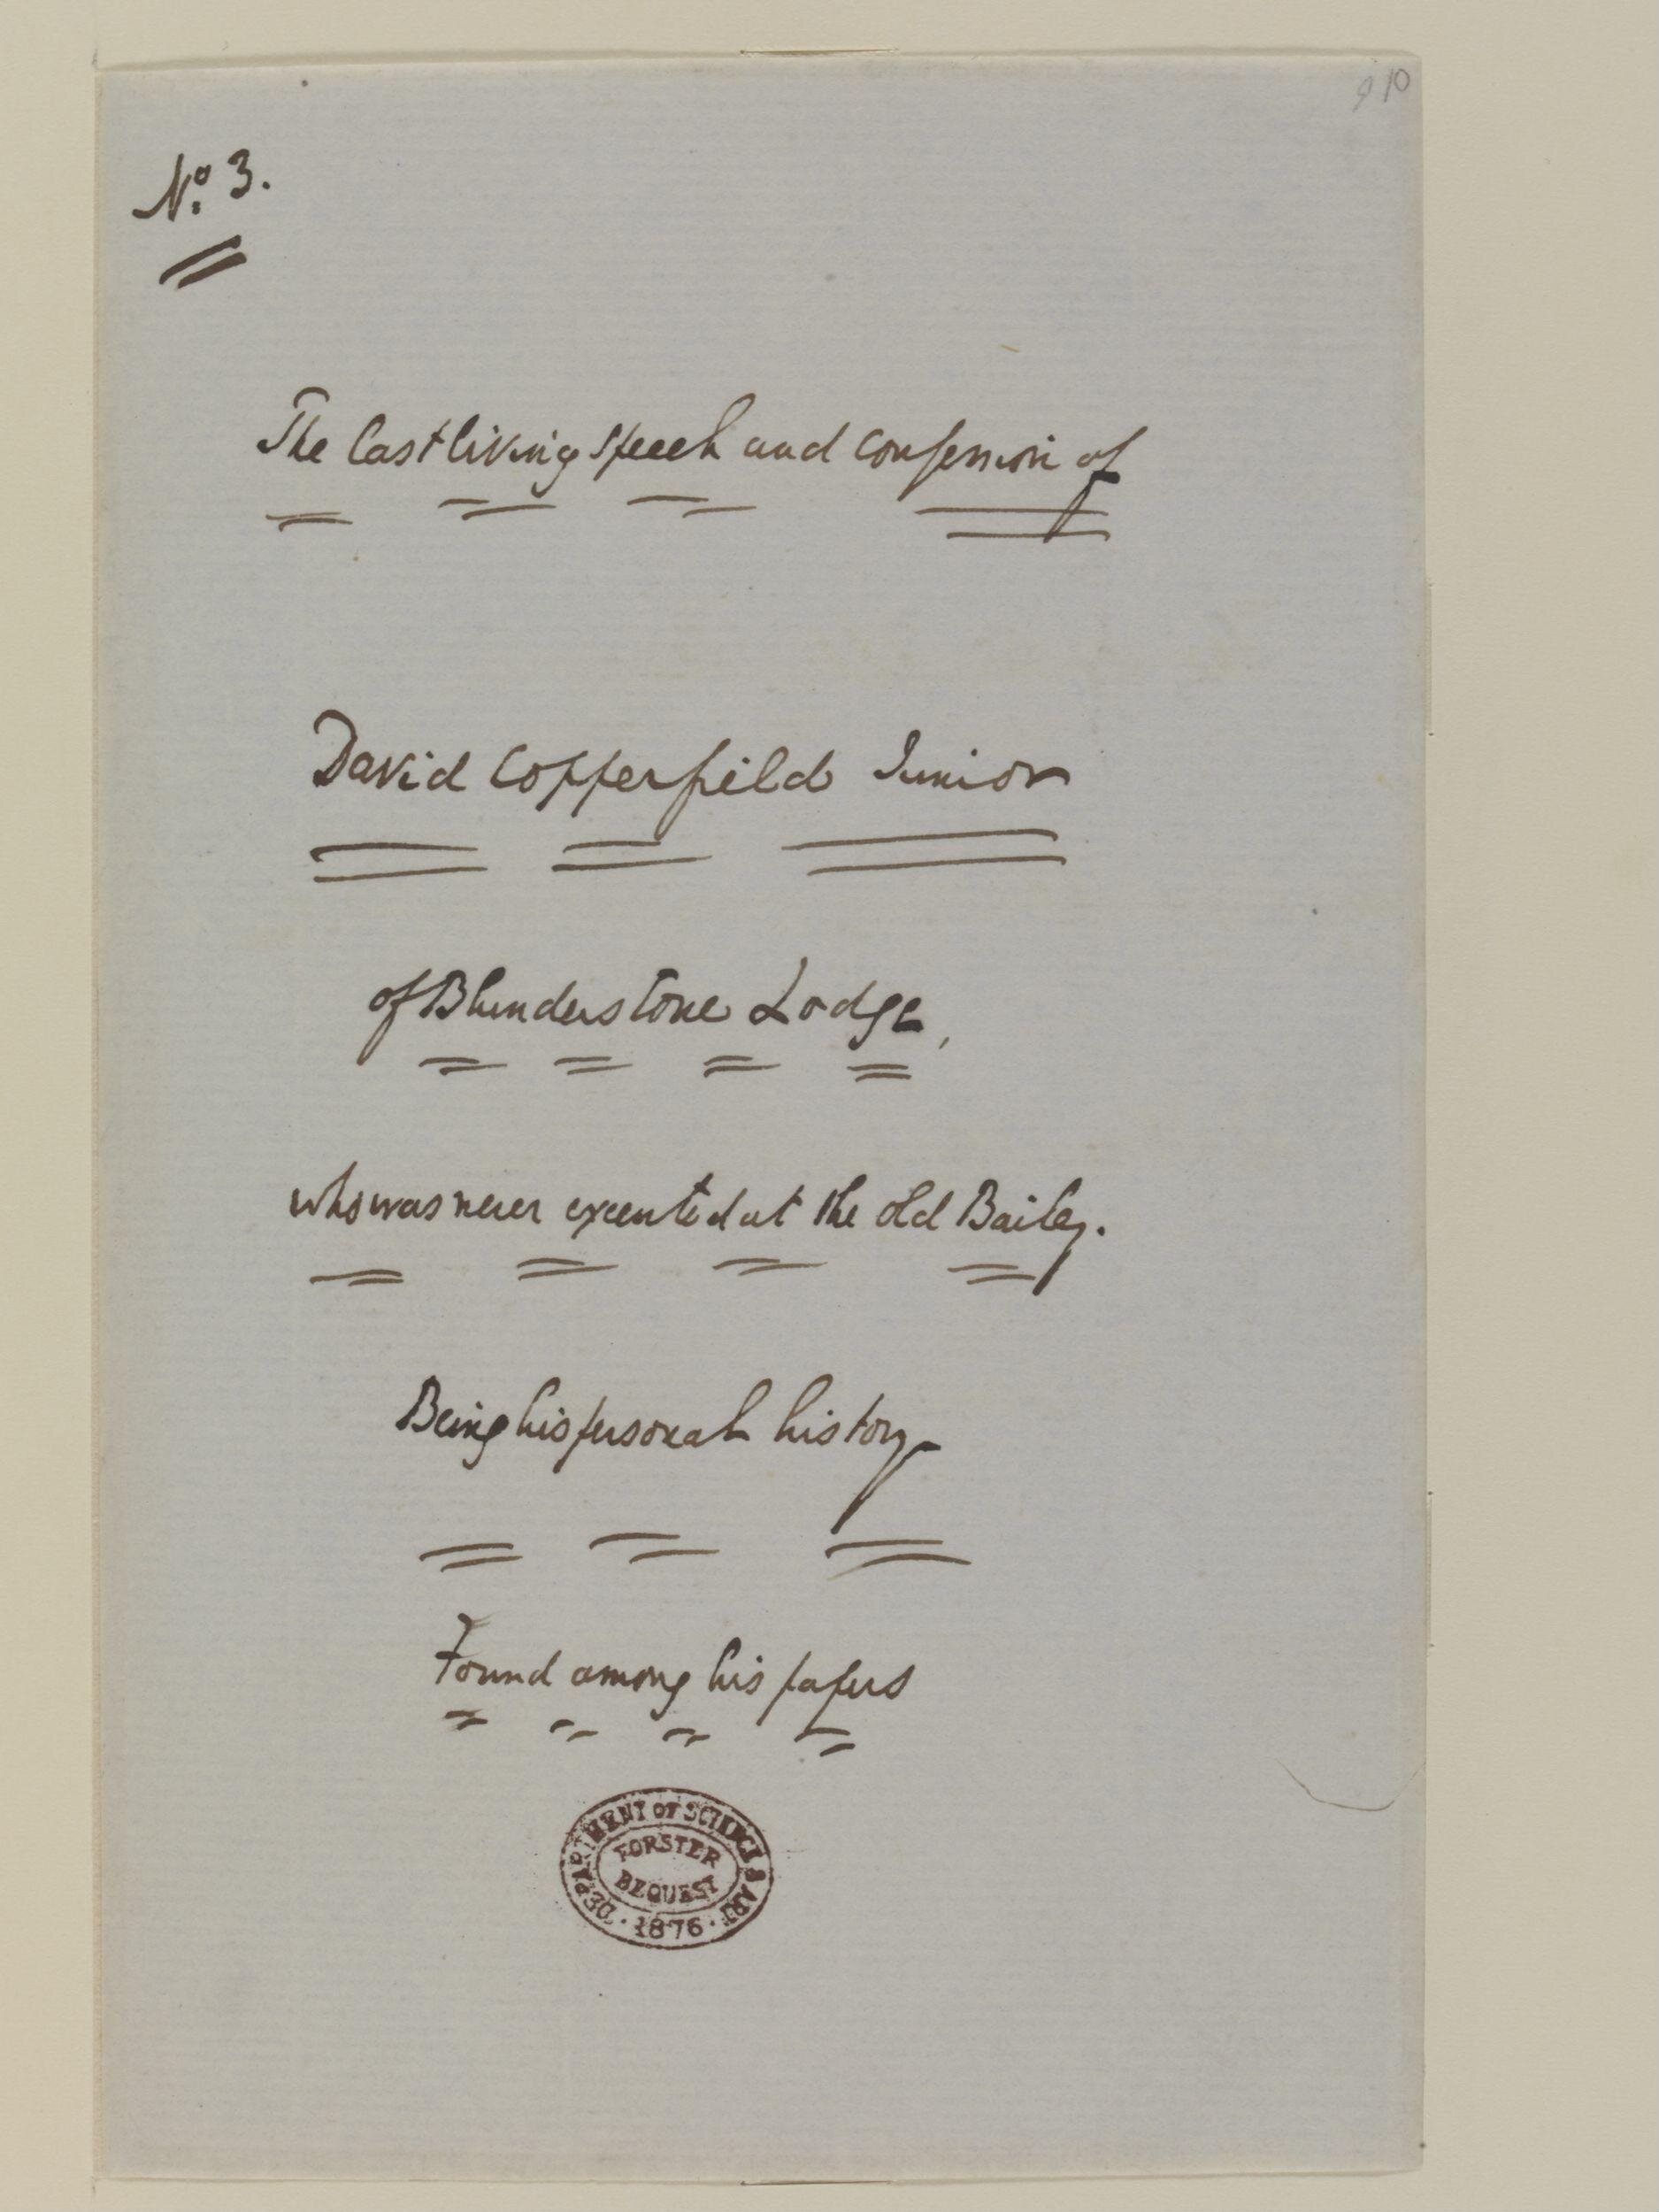 9 10
Nº 3.
The last living speech and confession of
David Copperfield Junior
of Blunderstone Lodge,
who was never executed at the Old Bailey.
Being his personal history
Found among his papers
DEPARTMENT OF SCIENCE & ART
FORSTER
BEQUEST
· 1876 ·